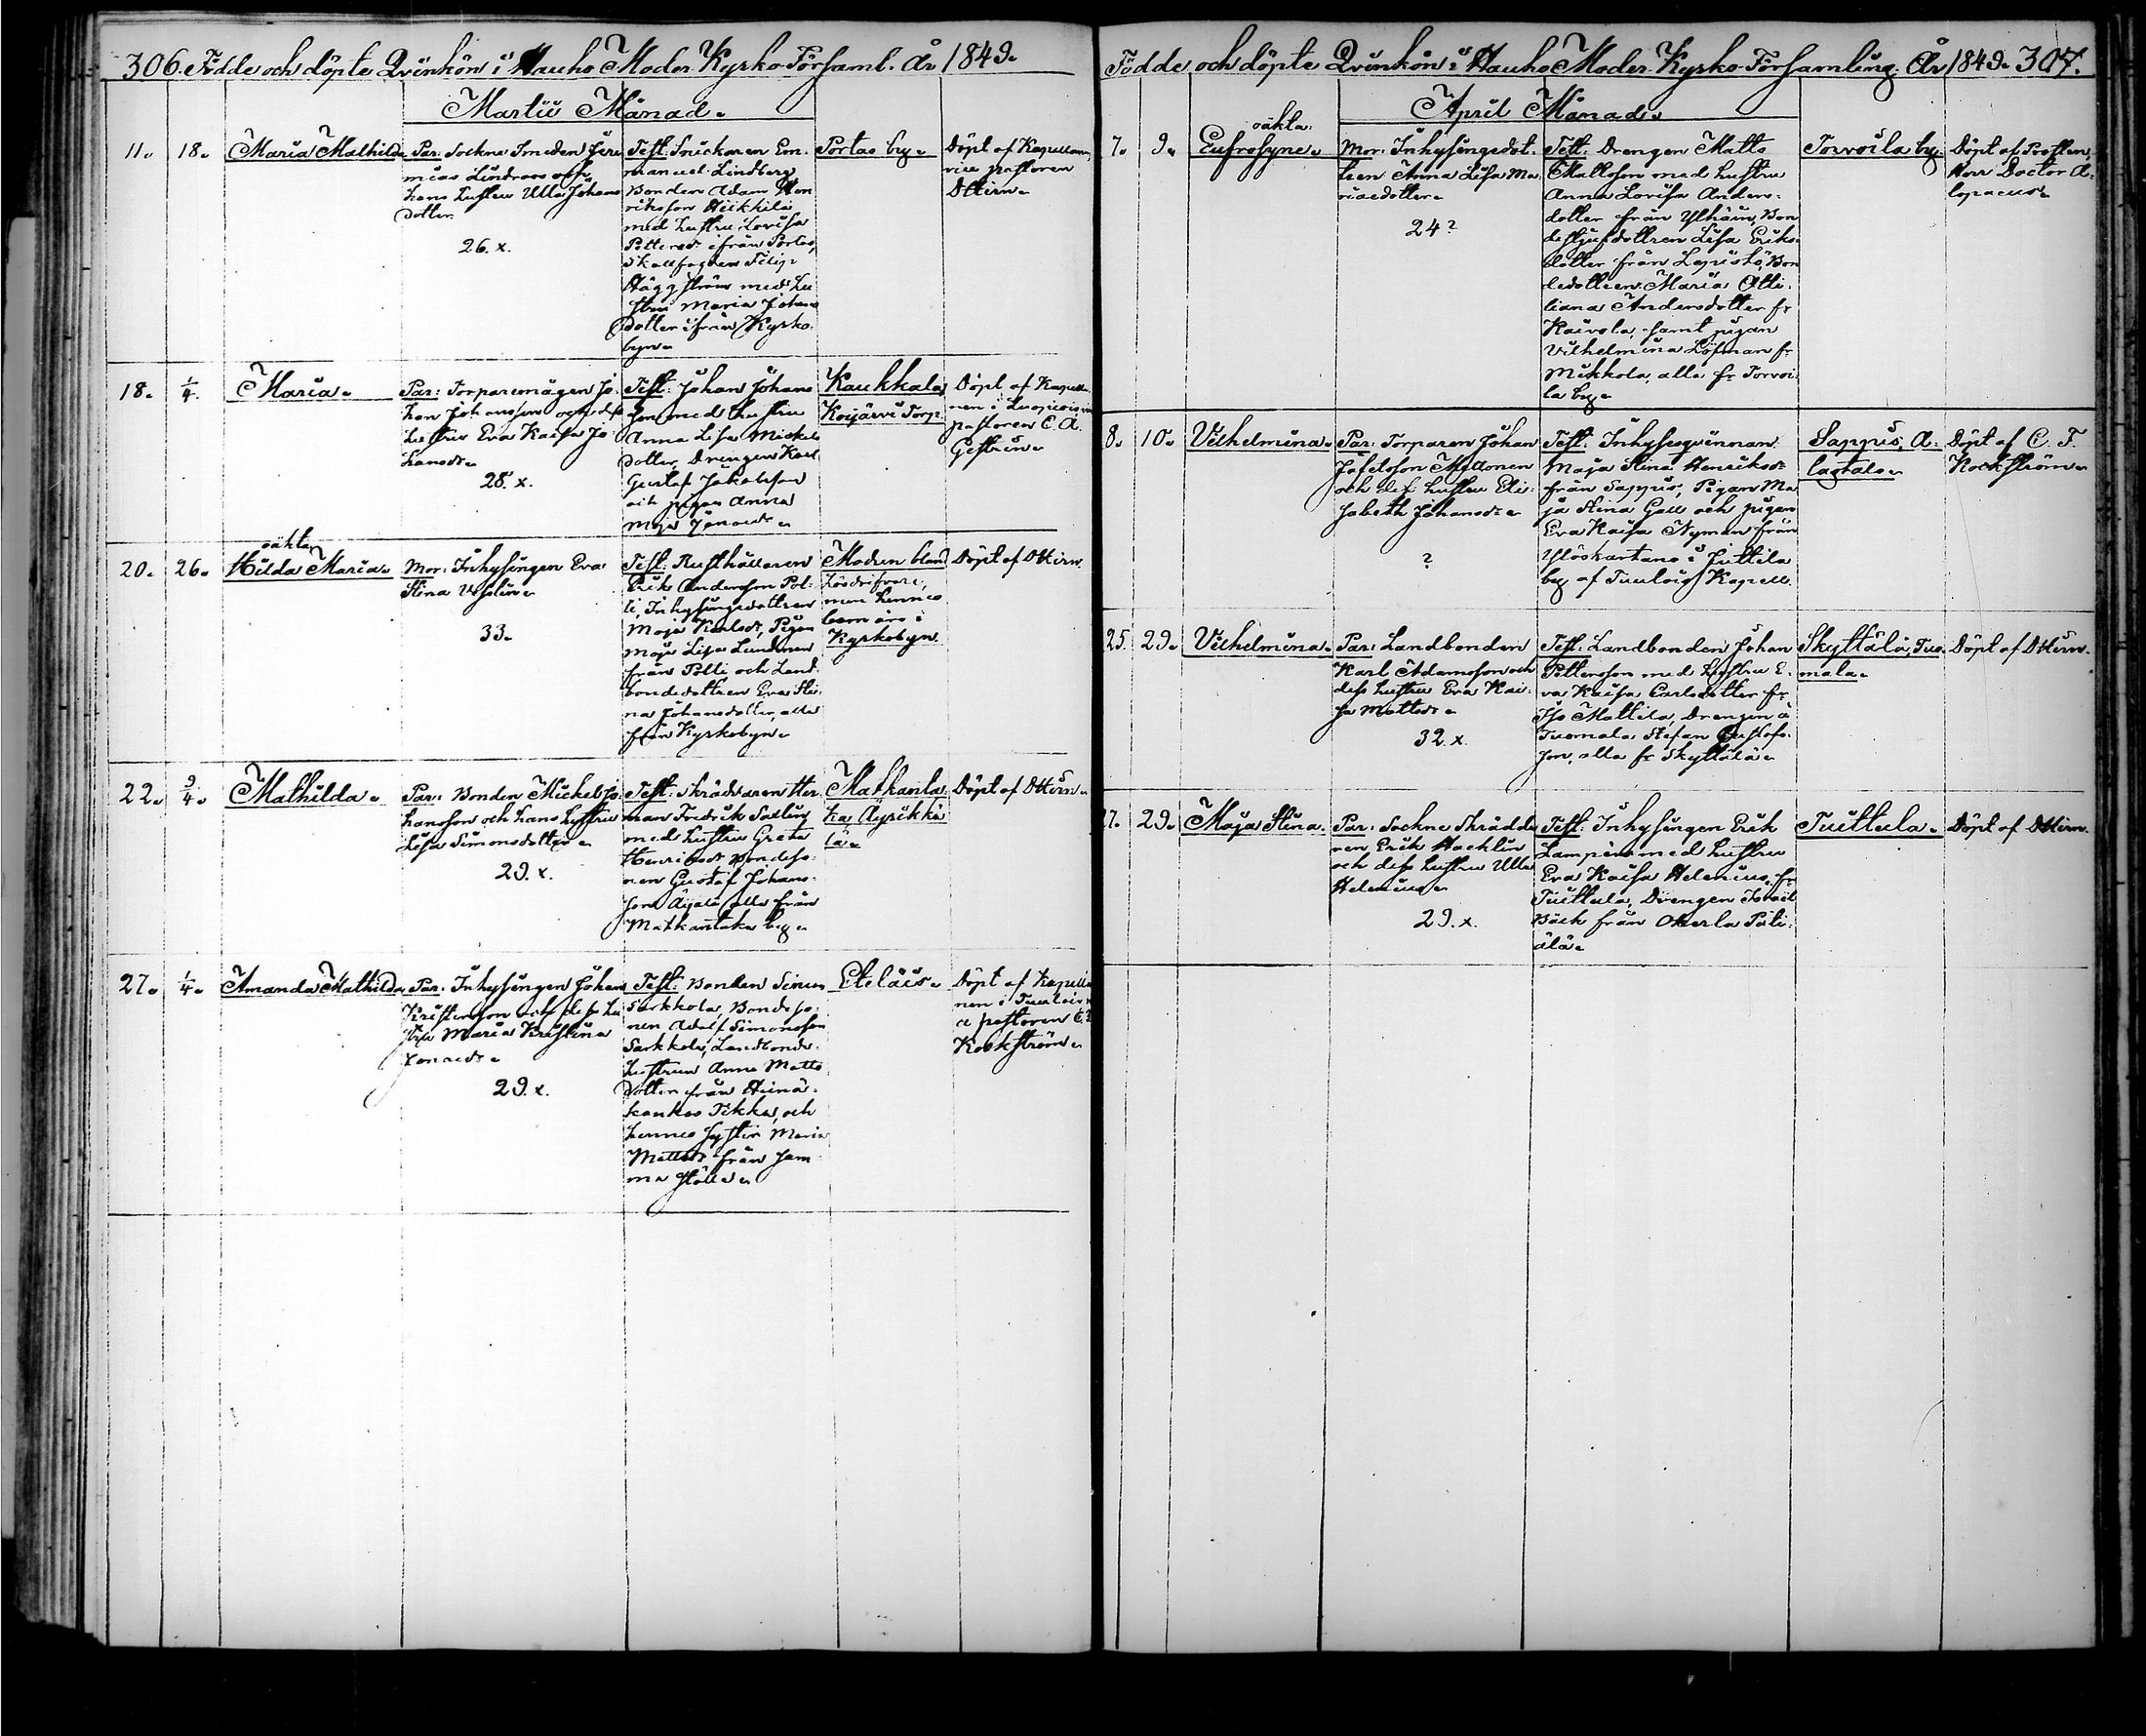 306. Födde och döpte Qvinkön i Hauho Moder Kyrko-Församl. År 1849.
Martii Månad.
11. 18. Maria Mathilda
Par: Sockne Smeden Jere
mias Lindroos och
hans hustru Ulla Johans
dotter.
26. x.
Test: Snickaren Em
manuel Lindberg
Bonden Adam Hen
riksson Heikkilä
med hustru Lovisa
Pettersdr ifrån Portas,
Skallfogden Filip
Häggström med hu
stru Maria Johans
dotter ifrån Kyrko
byn.
Portas by.
Döpt af Kapellanen,
vice pastoren
Ottin.
18. 1/4. Maria.
Par: Torparemågen Jo
han Johansson och dess
hustru Eva Kaisa Jo
hansdr.
28. x.
Test: Johan Johans
son med hustru
Anna Lisa Mickels
dotter, Drengen Karl
Gustaf Jakobsson
och pigan Anna
Maja Jonasdr.
Kaukkala,
Kojärvi Torp.
Döpt af Kapella
nen i Luopiois,
pastoren C. A.
Gestrin.
oäkta
20. 26. Hilda Maria.
Mor: Inhysingen Eva
Stina
33.
Test: Rusthållaren
Erik Andersson Pol
li, Inhysingedottren
Maja Karlsdr, Pigan
Maja Lisa Lindman
från Polli och Land
bondedottren Eva Sti
na Johansdotter, alla
från Kyrkobyn.
Modren bland
Lösdrifvare,
men hennes
barn äro i
Kyrkobyn.
Döpt af Ottin.
22. 9/4. Mathilda.
Par: Bonden Mickel Jo
hansson och hans hustru
Lisa Simonsdotter.
29. x.
Test: Skräddaren Her
man Fredrik Sallin
med hustru Greta
Henriksdr, Bondeso
nen Gustaf Johans
son Äijälä, alla från
Matkantaka by.
Matkanta
ka Äyrikkä
lä.
Döpt af Ottin.
27. 1/4. Amanda Mathilda
Par: Inhysingen Johan
Kristersson och dess hu
stru Maria Kristina
Jonasdr.
29. x.
Test: Bonden Simon
Sarkkola, Bondeso
nen Adolf Simonsson
Sarkkola, Landbonde
hustrun Anna Matts
dotter från Heinä
kankas Tikka, och
hennes syster Maria
Mattsdr från sam
ma ställe.
Eteläis.
Döpt af Kapella
nen i Tuulois
pastoren C. F.
Kockström.
Födde och döpte Qvinkön i Hauho Moder Kyrko-Församling År 1849. 307.
April Månad.
oäkta
7. 9. Eufrosyne.
Mor: Inhysingedot
tren Anna Lisa Ma
riaedotter.
24?
Test: Drengen Matts
Mattsson med hustru
Anna Lovisa Anders
dotter från Ylhäin, Bon
destjufdottren Lisa Eriks
dotter från Lepistö, Bon
dedottren Maria Otti
liana Andersdotter fr
Kaivola, samt pigan
Vilhelmina Löfman fr
Mikkola, alla fr Torvoi
la by.
Torvoila by.
Döpt af Prosten,
Herr Doctor A
lopaeus.
8. 10. Vilhelmina.
Par: Torparen Johan
Josefsson Mettonen
och dess hustru Eli
sabeth Johansdr.
?
Test: Inhysesqvinnan
Maja Stina Henriksdr
från Sappis, Pigan Ma
ja Stina Gall och pigan
Eva Kaisa Nyman från
Ylöskartano i Juttila
by af Tuulois Kapell.
Sappis, A
lagtalo.
Döpt af C. F.
Kockström.
25. 29. Vilhelmina.
Par: Landbonden
Karl Adamsson och
dess hustru Eva Kai
sa Mattsdr.
32. x.
Test: Landbonden Johan
Pettersson med hustru E
va Kaisa Carlsdotter fr
Iso Mattila, Drengen å
Tuomala Stefan Gustafs
son, alla fr Skyttälä.
Skyttälä, Tuo
mala.
Döpt af Ottin.
27. 29. Maja Stina.
Par: Sockne Skrädda
ren Erik Hacklin
och dess hustru Ulla
Helenius.
29. x.
Test: Inhysingen Erik
Lampén med hustru
Eva Kaisa Helenius fr
Tuittula, Drengen Israel
Bäck från Okerla Päti
älä.
Tuittula.
Döpt af Ottin.